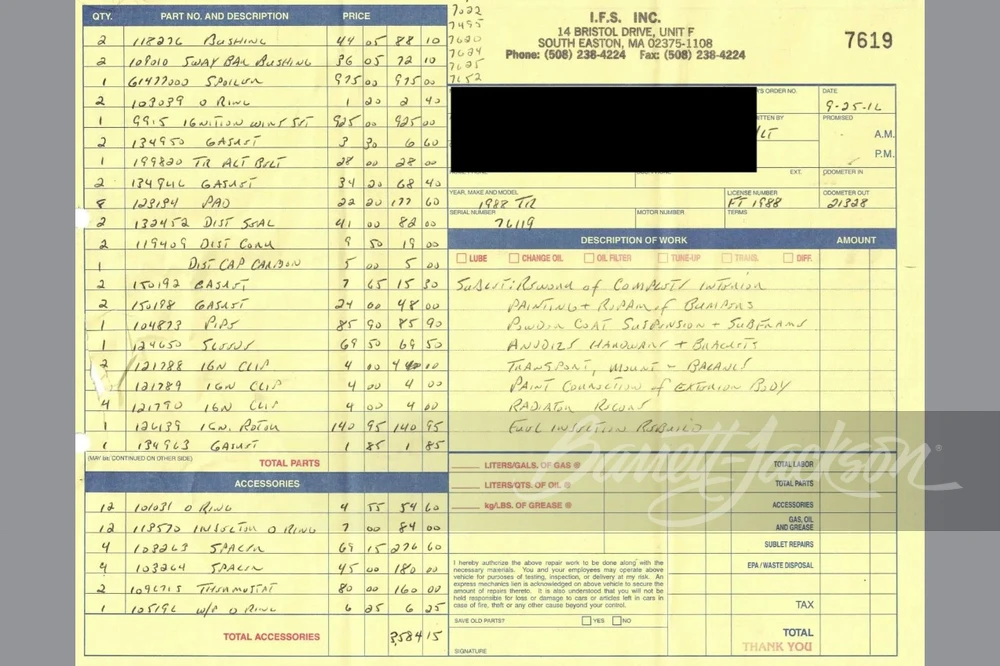 7022
7495
7620
7624
7625
7652
I.F.S. INC.
14 BRISTOL DRIVE, UNIT F
SOUTH EASTON, MA 02375-1108
Phone: (508) 238-4224 Fax: (508) 238-4224
7619
QTY. PART NO. AND DESCRIPTION PRICE
2 118276 BUSHING 44 05 88 10
2 109010 SWAY BAR BUSHING 36 05 72 10
1 61477000 SPOILER 975 00 975 00
2 103039 O RING 1 20 2 40
1 9915 IGNITION WIRE SET 925 00 925 00
2 134950 GASKET 3 30 6 60
1 199820 TR ALT BELT 28 00 28 00
2 134946 GASKET 34 20 68 40
8 123194 PAD 22 20 177 60
2 132452 DIST SEAL 41 00 82 00
2 119409 DIST 9 50 19 00
1 DIST CAP CARBON 5 00 5 00
2 150192 GASKET 7 65 15 30
2 150198 GASKET 24 00 48 00
1 104873 PIPE 85 90 85 90
1 124650 69 50 69 50
2 121788 IGN CLIP 4 00
121789 IGN CLIP 4 00 4 00
4 121790 IGN CLIP 4 00 4 00
1 126139 IGN. ROTOR 140 95 140 95
1 134963 GASKET 1 85 1 85
(MAY be: CONTINUED ON OTHER SIDE) TOTAL PARTS
ACCESSORIES
12 101031 O RING 4 55 54 60
12 118570 INJECTOR O RING 7 00 84 00
4 103263 SPACER 69 15 276 60
4 103264 SPACER 45 00 180 00
2 THERMOSTAT 80 00 160 00
1 105196 W/P O RING 6 25 6 25
TOTAL ACCESSORIES 3584 15
ORDER NO. DATE
9-25-16
PROMISED
A.M.
P.M.
EXT. ODOMETER IN
YEAR, MAKE AND MODEL LICENSE NUMBER ODOMETER OUT
1988 TR FT 1988 21328
SERIAL NUMBER MOTOR NUMBER TERMS
76119
DESCRIPTION OF WORK AMOUNT
LUBE CHANGE OIL OIL FILTER TUNE-UP TRANS. DIFF.
SUBLET: REWORK of COMPLETE INTERIOR
PAINTING + REPAIR of BUMPERS
POWDER COAT SUSPENSION + SUBFRAME
ANODIZE HARDWARE + BRACKETS
TRANSPORT, MOUNT - BALANCE
PAINT CORRECTION of EXTERIOR BODY
RADIATOR RECORE
FUEL INJECTION REBUILD
Barrett-Jackson
LITERS/GALS. OF GAS @ TOTAL LABOR
LITERS/QTS. OF OIL @ TOTAL PARTS
kg/LBS. OF GREASE @ ACCESSORIES
GAS, OIL AND GREASE
SUBLET REPAIRS
EPA / WASTE DISPOSAL
TAX
TOTAL
THANK YOU
I hereby authorize the above repair work to be done along with the
necessary materials. You and your employees may operate above
vehicle for purposes of testing, inspection, or delivery at my risk. An
express mechanics lien is acknowledged on above vehicle to secure the
amount of repairs thereto. It is also understood that you will not be
held responsible for loss or damage to cars or articles left in cars in
case of fire, theft or any other cause beyond your control.
SAVE OLD PARTS? YES NO
SIGNATURE